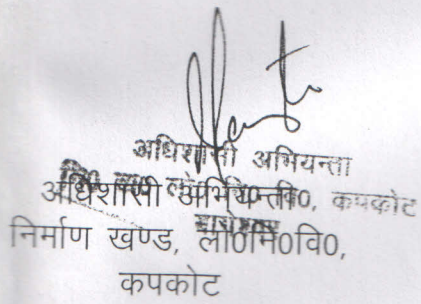 अधिशासी अभियन्ता
लो०नि०वि०, कपकोट
अधिशासी अभियन्ता
निर्माण खण्ड, लो०नि०वि०,
कपकोट